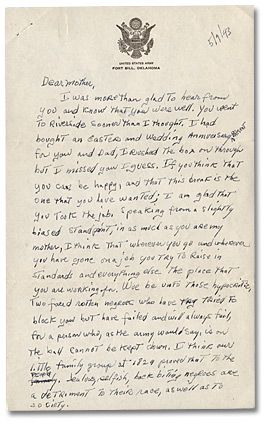 UNITED STATES ARMY
FORT SILL, OKLAHOMA
5/9/43
Dear Mother,
I was more than glad to hear from
you and know that you were well. You went
to Riverside sooner than I thought. I had
bought an Easter and Wedding Anniversary
for you and Dad, I rushed the box on through
but I missed you I guess. If you think that
you can be happy, and that this break is the
one that you have wanted; I am glad that
you took the job. Speaking from a slightly
biased standpoint, in as much as you are my
mother, I think that wherever you go and wherever
you have gone on a job you try to raise in
standards and everything else the place that
you are working for. Woe be unto those hypocrites,
Two faced rotten negroes who have tried to
block you but have failed and will always fail,
for a person who, as the army would say, is on
the ball cannot be kept down. I think our
little family group at 1824 proved that to the
Jealous, selfish, back biting negroes are
a detriment to their race, as well as to
society.